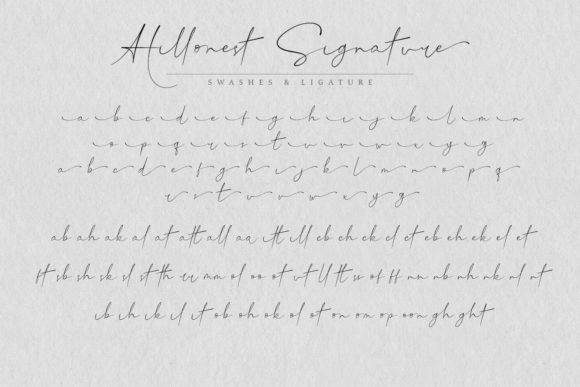 Hillonest Signature
SWASHES & LIGATURE
a b c d e f g h i j k l m n
o p q r s t u v w x y z
a b c d e f g h i j k l m n o p q
r s t u v w x y z
ab ah ak al at att all aa itt ill cb ch ck cl ct eb eh ek el et
ft sb sh sk sl st th rr mm ol oo ot ut ll tt ss of ff nn nb nh nk nl nt
ib ih ik il it ob oh ok ol ot on om op oon gh ght